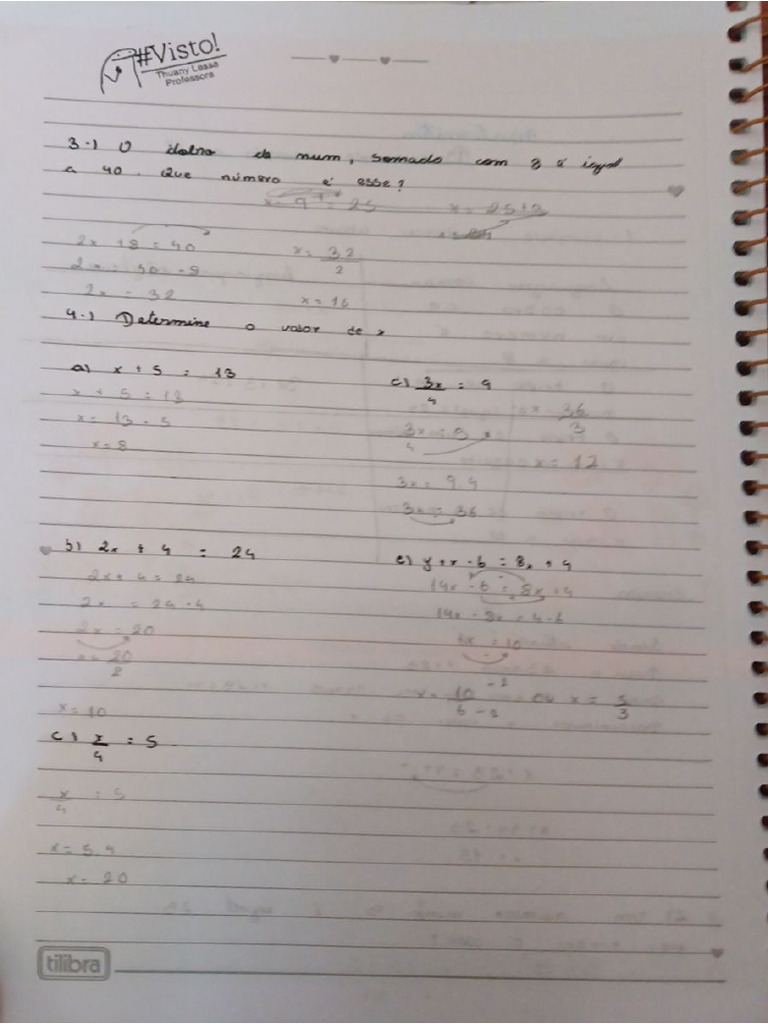 #Visto!
Thuany Lessa
Professora
3-) O dobro do num, somado com 8 é igual
a 40. Que número é esse?
x = 25+3
2x +8 = 40
2x = 40 - 8
2x = 32
x = 32/2
x = 16
4-) Determine o valor de x
a) x + 5 = 13
x + 5 = 13
x = 13 - 5
x = 8
b) 2x + 4 = 24
2x + 4 = 24
2x = 24 - 4
2x = 20
x = 20/2
x = 10
c) x/4 = 5
x/4 = 5
x = 5.4
x = 20
c) 3x/4 = 9
3x/4 = 9
3x = 9.4
3x = 36
x = 36/3
x = 12
e) x - 6 = 8x + 4
14x - 6 = 8x + 4
14x - 8x = 4 - 6
6x = 10
x = 10/6 ou x = 5/3
tilibra